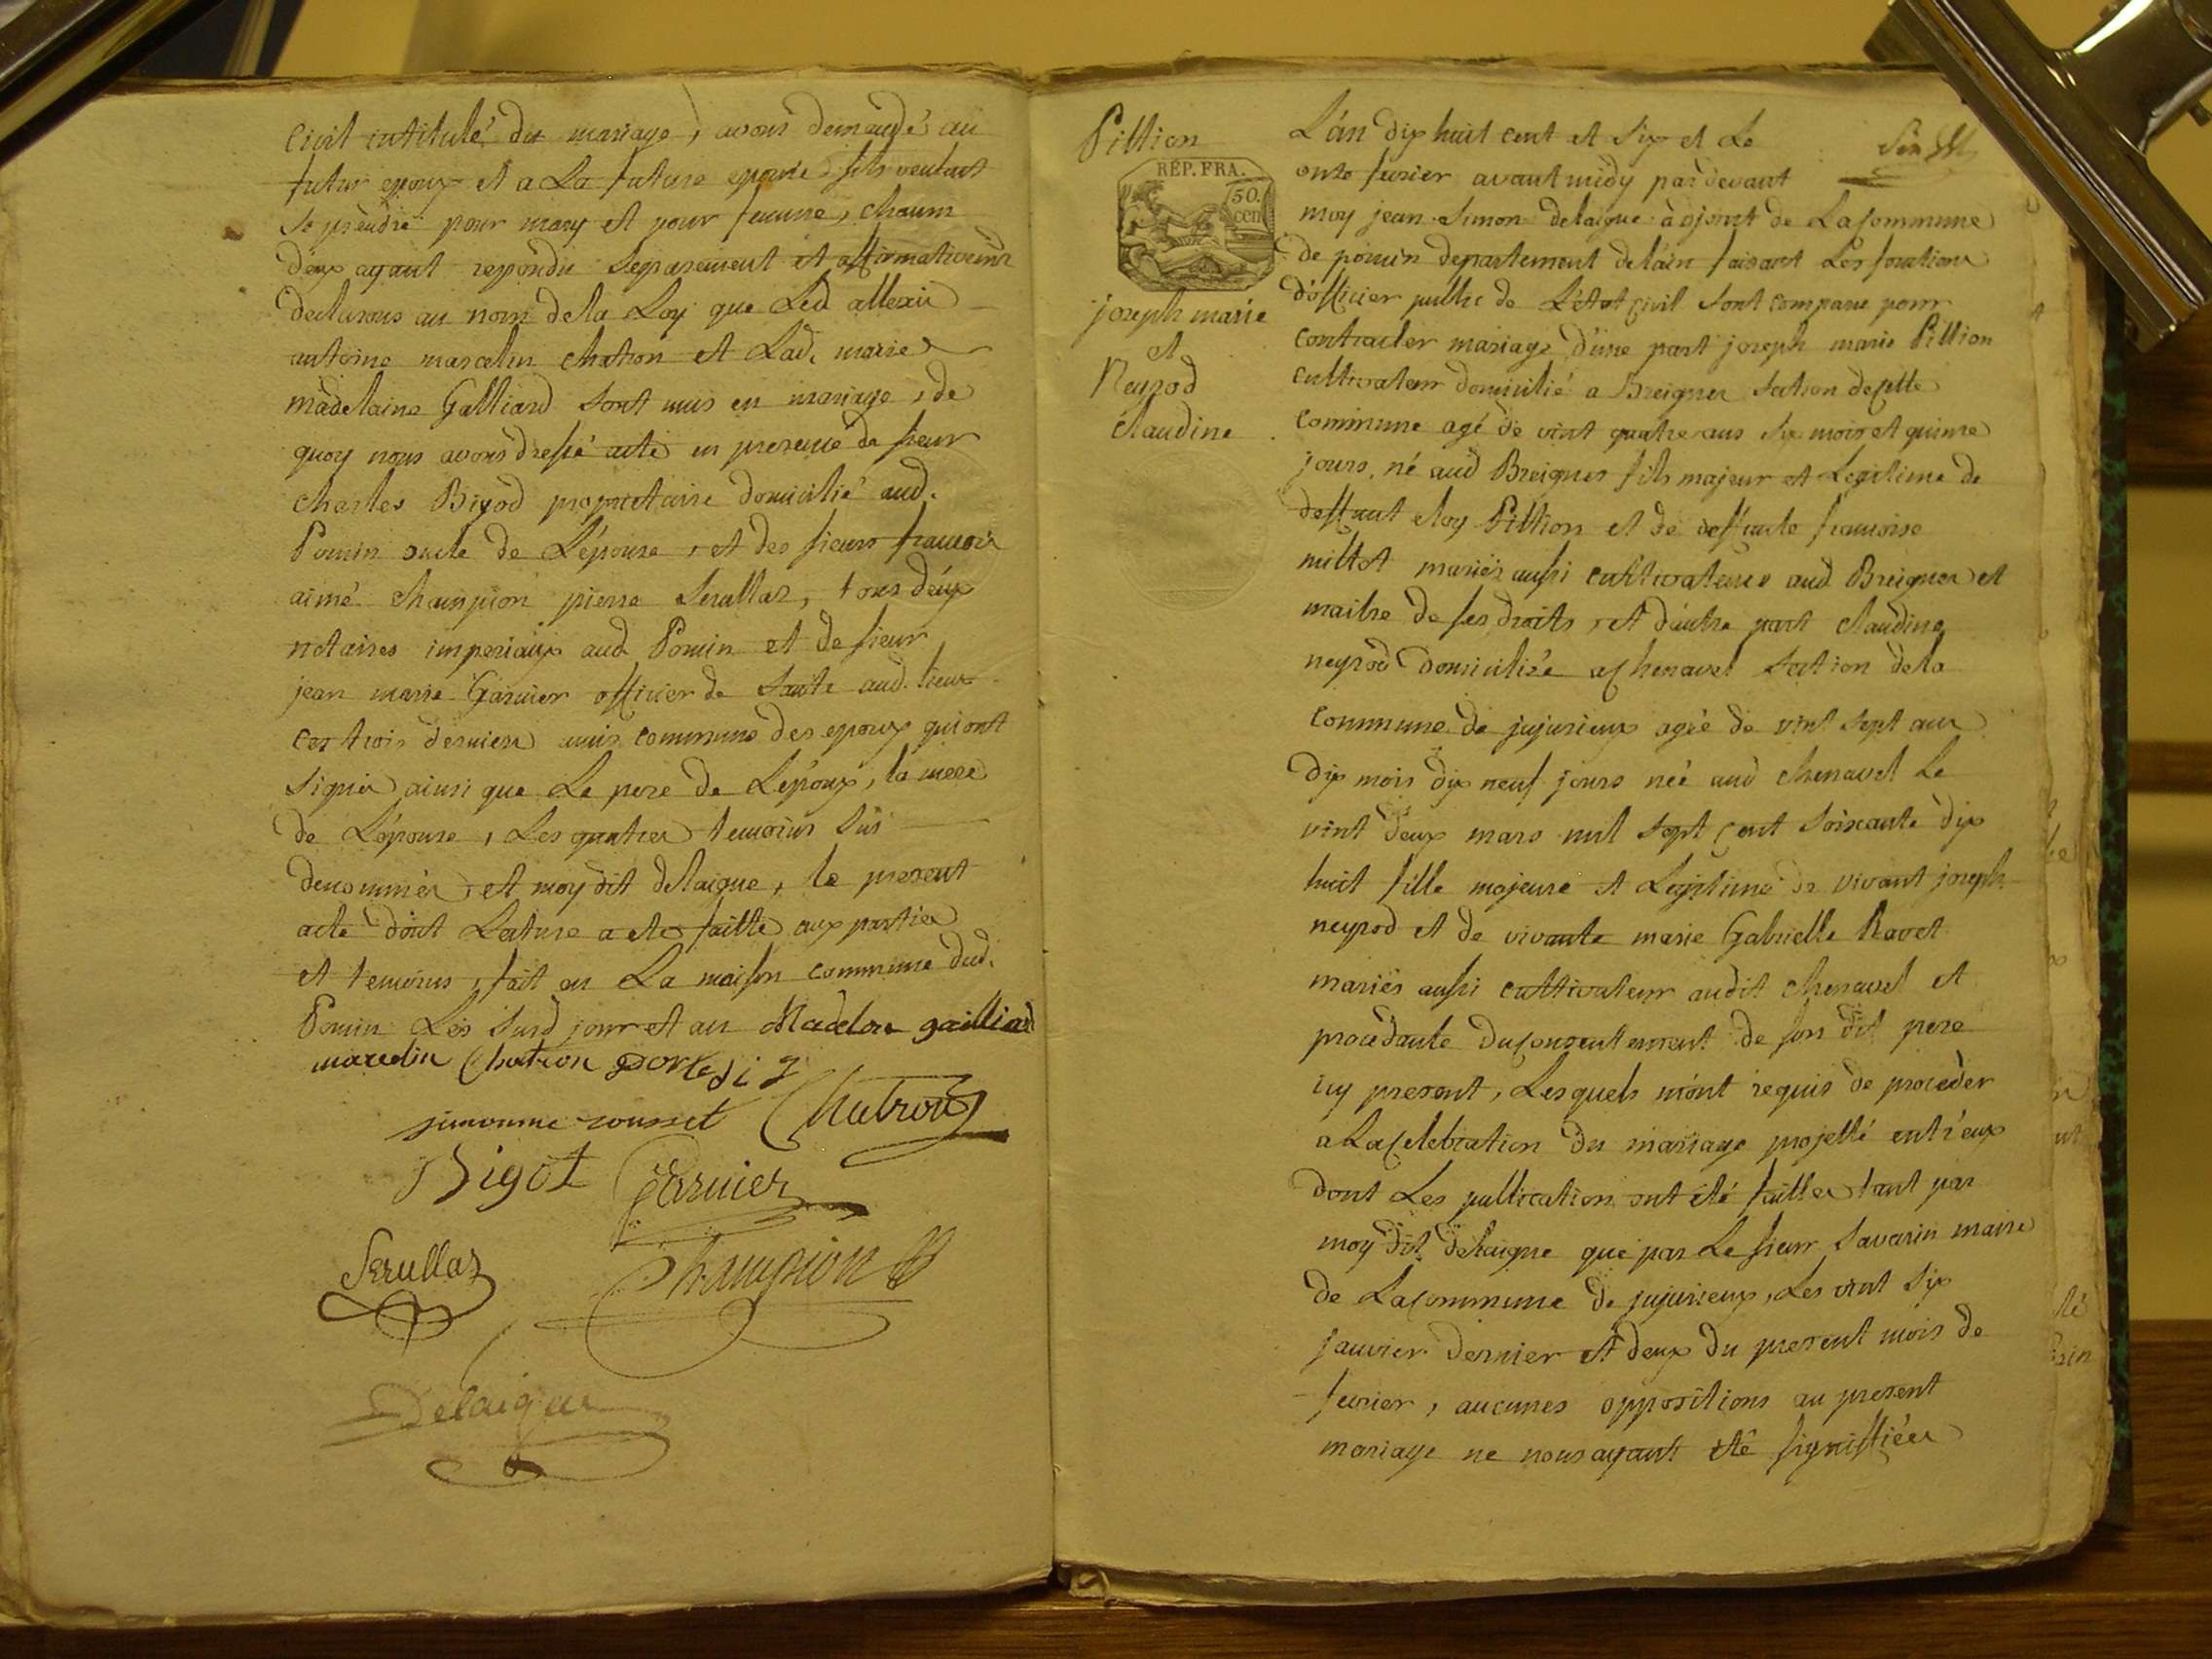 Civil intitulé du mariage, avons demandé au
futur epoux et a La future epouse sils veulent
se prendre pour mary et pour femme, chacun
d'eux ayant repondu Separement et affirmativemt
declarons au nom dela Loy que Led allexis
antoine marcelin chatron et Lad. marie
madelaine Galliard sont unis en mariage, de
quoy nous avons dressé acte en presence de sieur
charles Bigod proprietaire domicilié aud.
Poncin oncle de L'épouse, et des sieurs francois
aimé champion pierre Serullaz, tous deux
notaires imperiaux aud Poncin et de sieur
jean marie Garnier officier de Santé aud. lieux
ces trois derniers amis communs des epoux qui ont
signés ainsi que Le pere de L'époux, la mere
de L'épouse, Les quatres temoins sus
denommés, et moy dit delaigue, le present
acte dont Lecture a eté faitte aux parties
et temoins, fait en La maison commune dud.
Poncin Les susd jour et an Madelon gailliard
marcelin Chatron
simonne rousset Chatron
Bigot Garnier
Serullaz Champion
Delaigue
Pittion
RÉP. FRA.
50. cen
joseph marie
et
Neyrod
Claudine
L'an dix huit cent et Six et Le
onze fevrier avant midy pardevant
moy jean Simon delaigue adjoint de La Commune
de poncin departement delain faisant Les fonctions
d'officier public de L'état Civil sont comparu pour
contracter mariage d'une part joseph marie Pittion
cultivateur domicilié a Breignes Section de Cette
commune agé de vint quatre ans six mois et quinze
jours, né aud Breignes fils majeur et Legitime de
deffunt eloy Pittion et de deffunte francoise
millet mariés aussi cultivateurs aud Breignes et
maitre de ses droits, et d'autre part claudine
neyrod domiciliée a Chenavel Section dela
commune de jujurieux agée de vint sept ans
dix mois dix neuf jours née aud chenavel Le
vint deux mars mil sept Cent Soixante dix
huit fille majeure et Legitime de vivant joseph
neyrod et de vivante marie Gabrielle Ravet
mariés aussi cultivateur audit chenavel et
procedante du Consentement de son dit pere
icy present, Lesquels m'ont requis de proceder
a La Celebration du mariage projetté entr'eux
dont Les publication ont été faittes tant par
moy dit delaigue que par Le sieur Savarin maire
de La Commune de jujurieux, Les vint Six
janvier dernier et deux du present mois de
fevrier, aucunes oppositions au present
mariage ne nous ayant été signiffiées